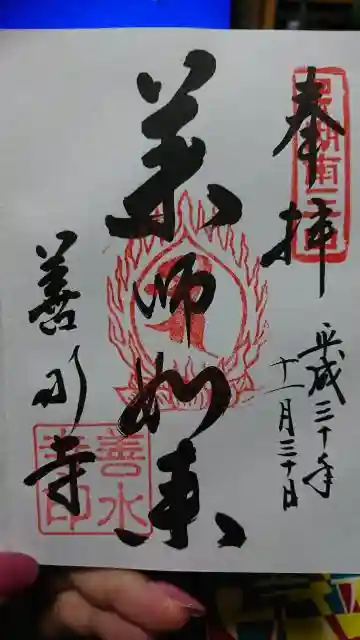 奉拝
平成三十年
十一月三十日
薬師如来
善水寺
善水寺印